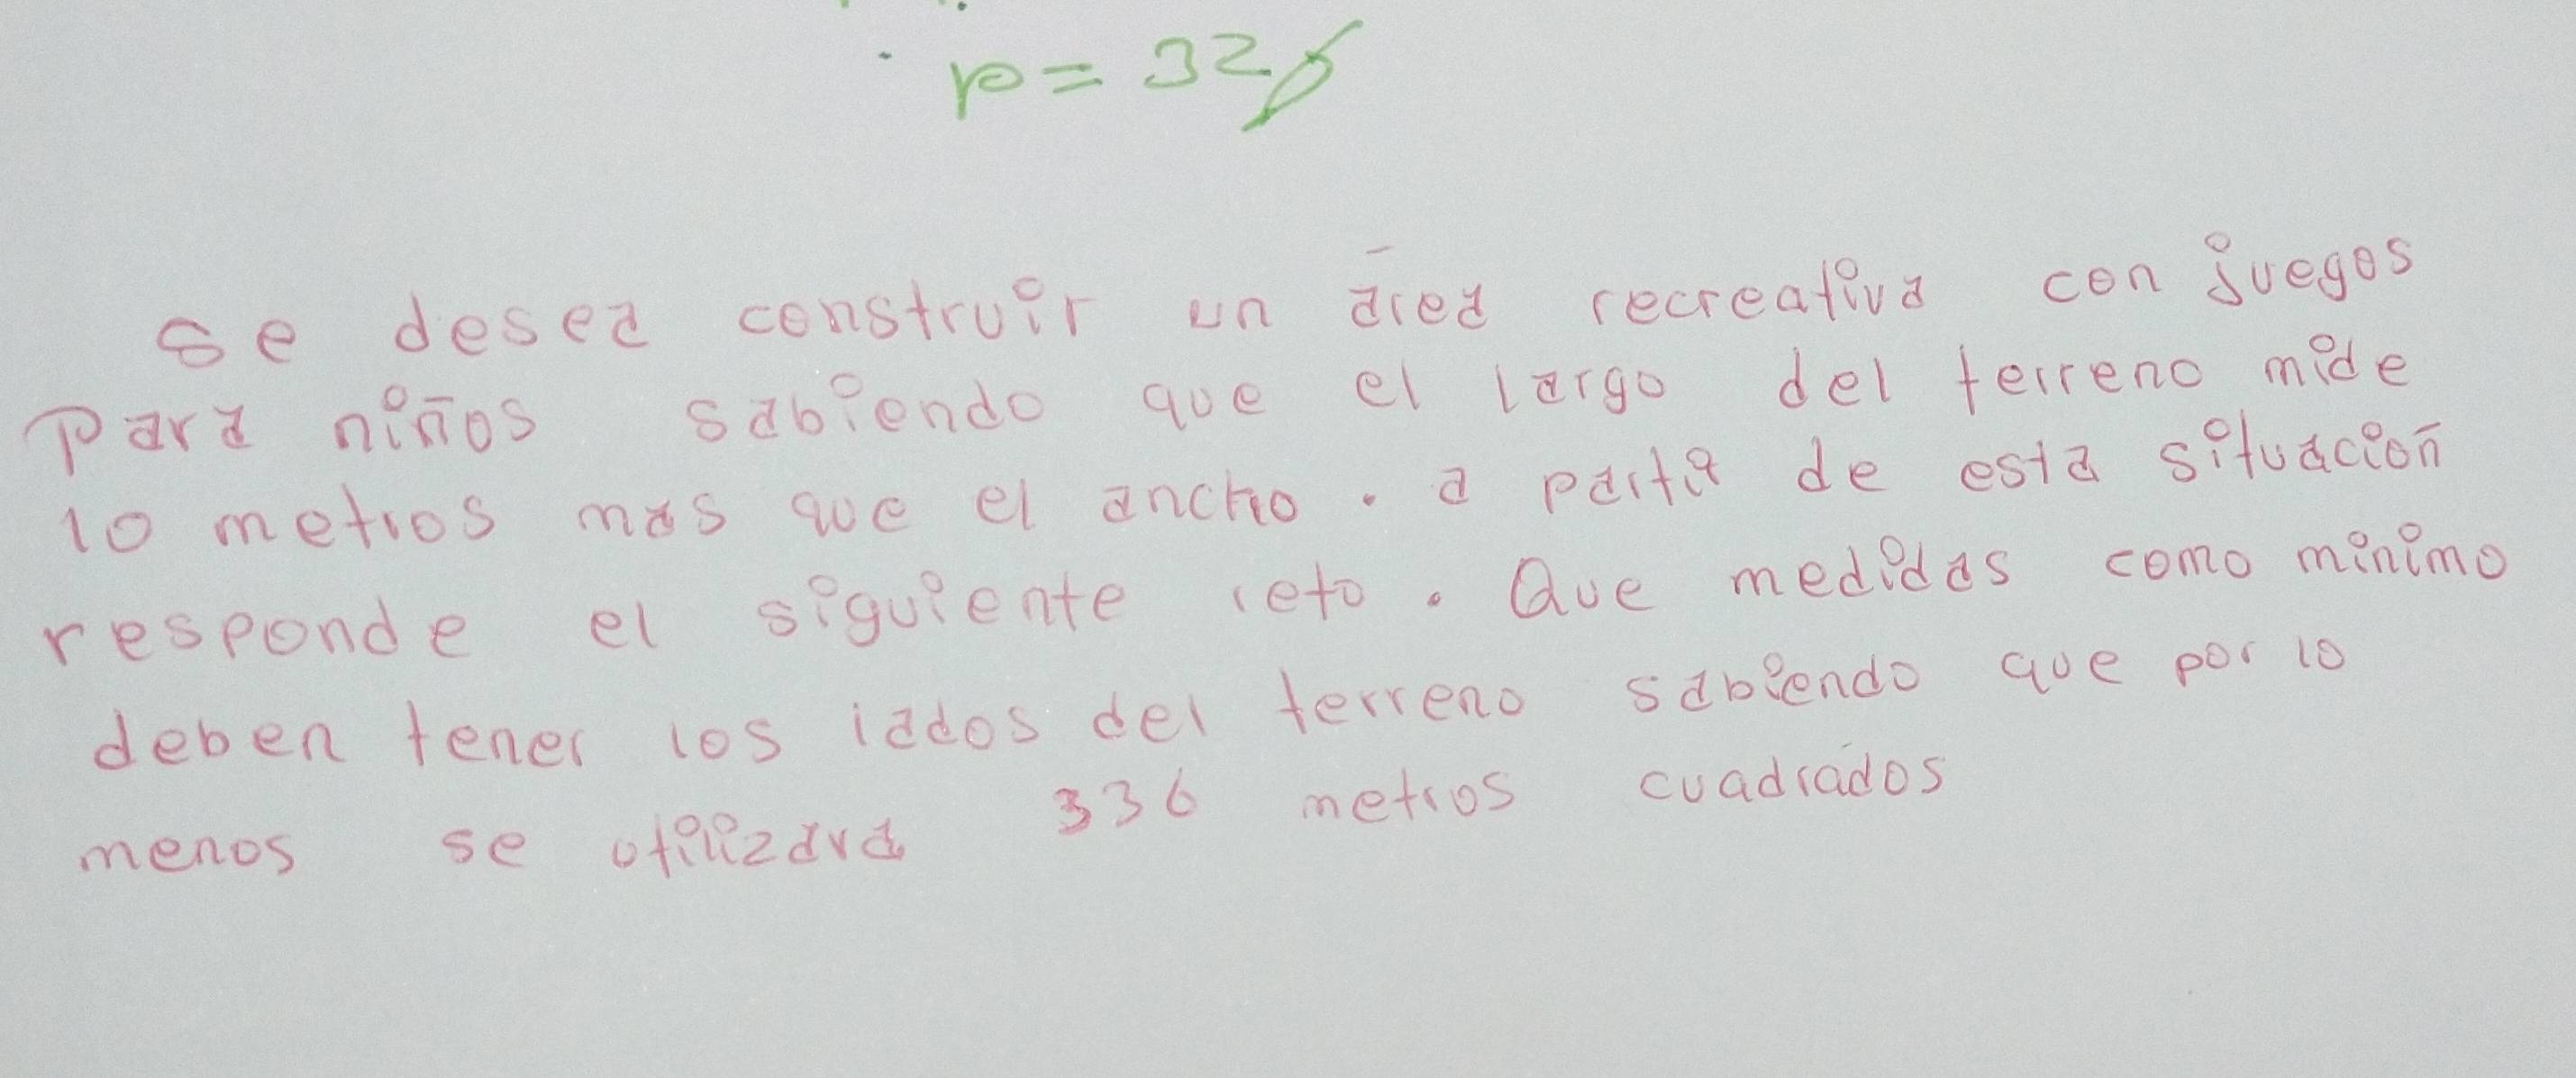 p = 32
Se desea construir un área recreativa con juegos
para niños sabiendo que el largo del terreno mide
10 metros mas que el ancho. a partir de esta situación
responde el siguiente reto. Que medidas como minimo
deben tener los lados del terreno sabiendo que por lo
menos se utilizara 336 metros cuadrados